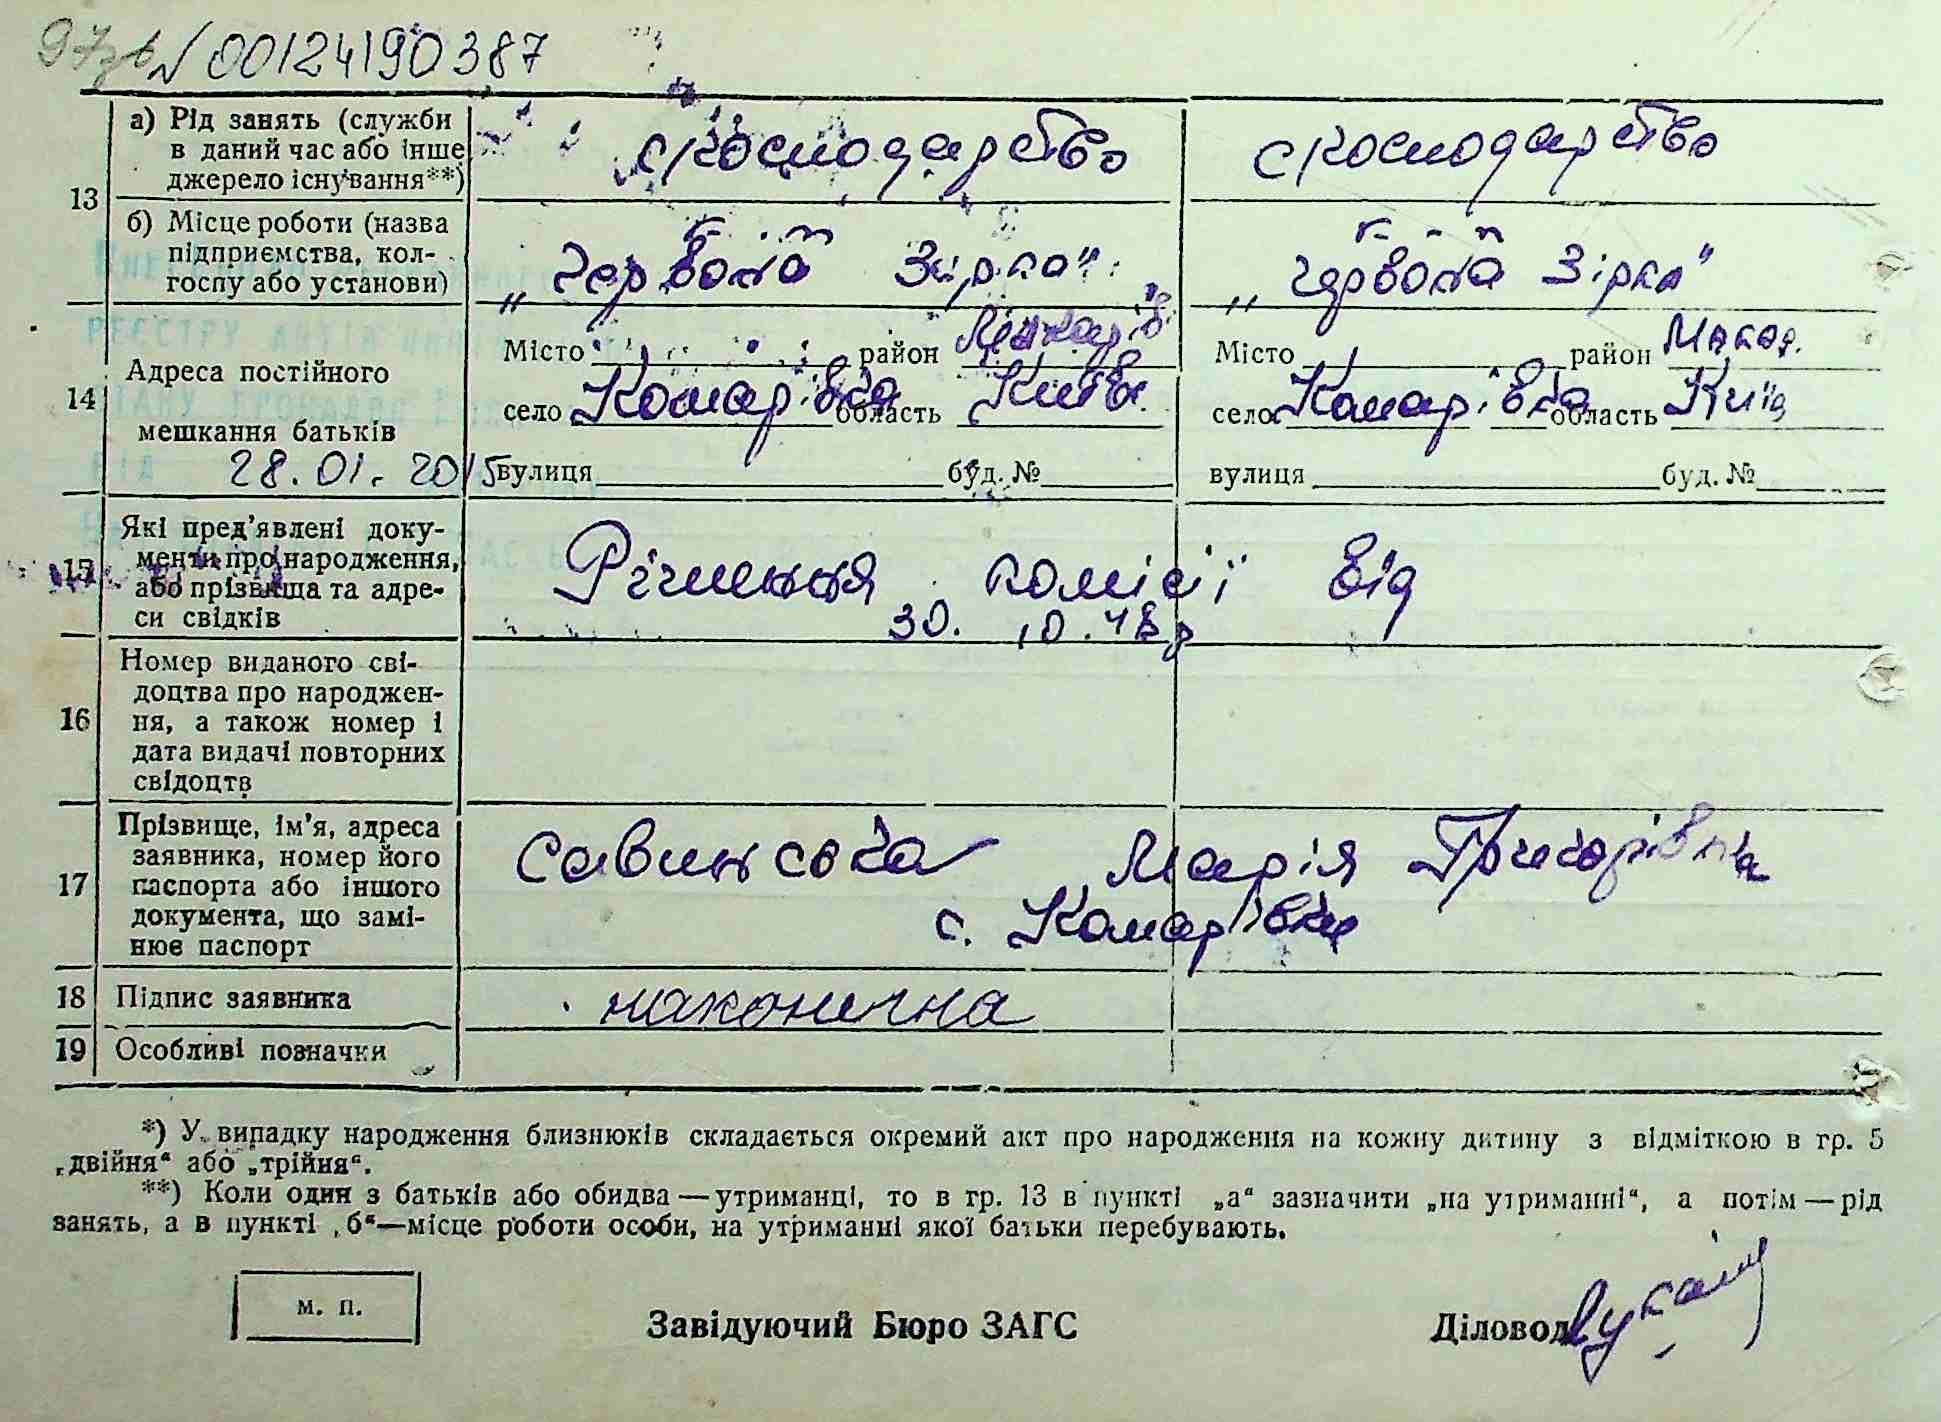 97зв N 00124190387
13
а) Рід занять (служби в даний час або інше джерело існування**)
с/господарство
с/господарство
б) Місце роботи (назва підприємства, колгоспу або установи)
К-п
„Червона Зірка"
К-п
„Червона Зірка"
14
Адреса постійного мешкання батьків
28.01.2015
Місто район Макарів
село Комарівка область Київ.
вулиця буд. №
Місто район Макар.
село Комарівка область Київ
вулиця буд. №
15
Які пред'явлені документи про народження, або прізвища та адреси свідків
Рішення комісії від
30.10.48 р
16
Номер виданого свідоцтва про народження, а також номер і дата видачі повторних свідоцтв
17
Прізвище, ім'я, адреса заявника, номер його паспорта або іншого документа, що замінює паспорт
Савинська Марія Григорівна
с. Комарівка
18
Підпис заявника
19
Особливі позначки
*) У випадку народження близнюків складається окремий акт про народження на кожну дитину з відміткою в гр. 5
„двійня" або „трійня".
**) Коли один з батьків або обидва — утриманці, то в гр. 13 в пункті „а" зазначити „на утриманні", а потім — рід
занять, а в пункті „б"—місце роботи особи, на утриманні якої батьки перебувають.
м. п.
Завідуючий Бюро ЗАГС
Діловод